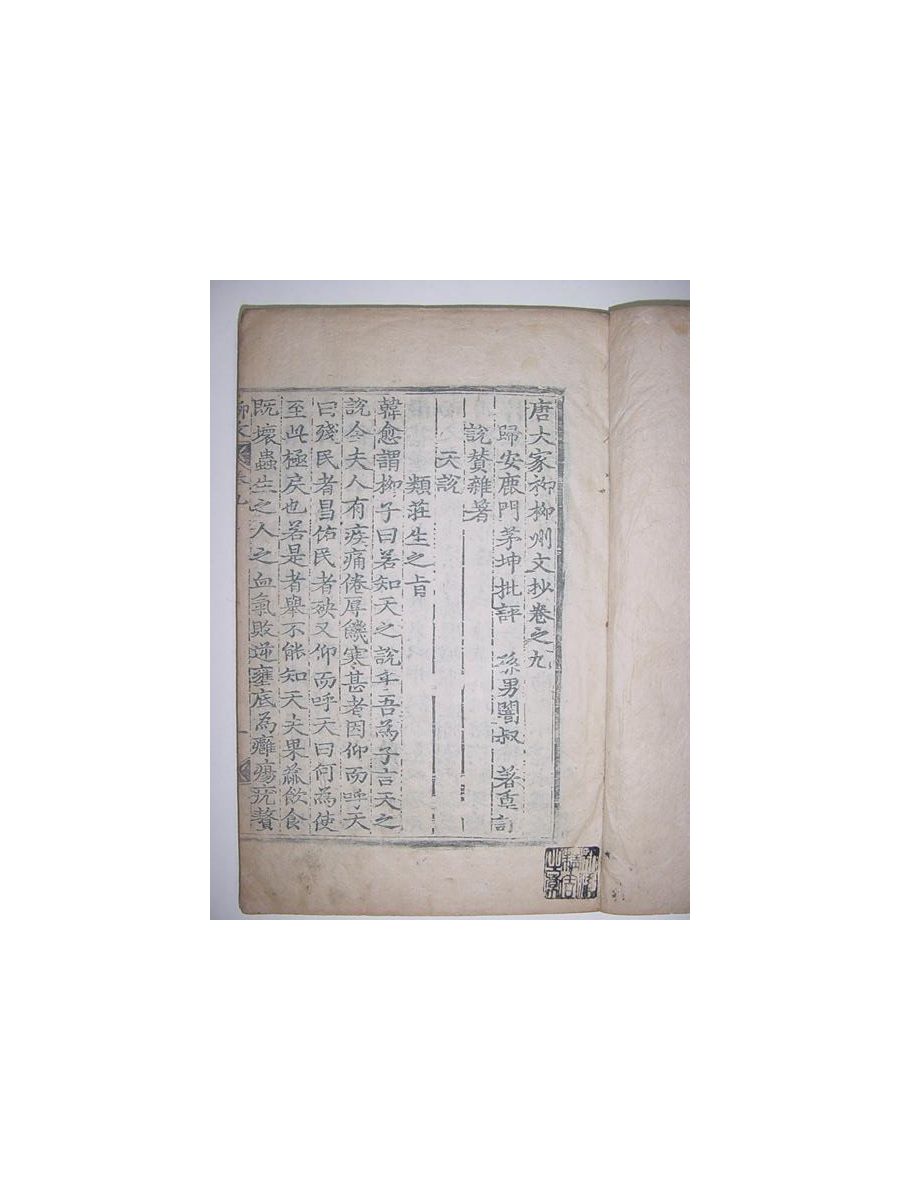 唐大家柳柳州文抄卷之九
歸安鹿門茅坤批評　孫男闇叔　著重訂
說贊雜著
天說
類莊生之旨
韓愈謂柳子曰若知天之說乎吾為子言天之
說今夫人有疾痛倦辱饑寒甚者因仰而呼天
曰殘民者昌佑民者殃又仰而呼天曰何為使
至此極戾也若是者舉不能知天夫果蓏飲食
既壞蟲生之人之血氣敗逆壅底為癰瘍疣贅
柳文　卷九　一